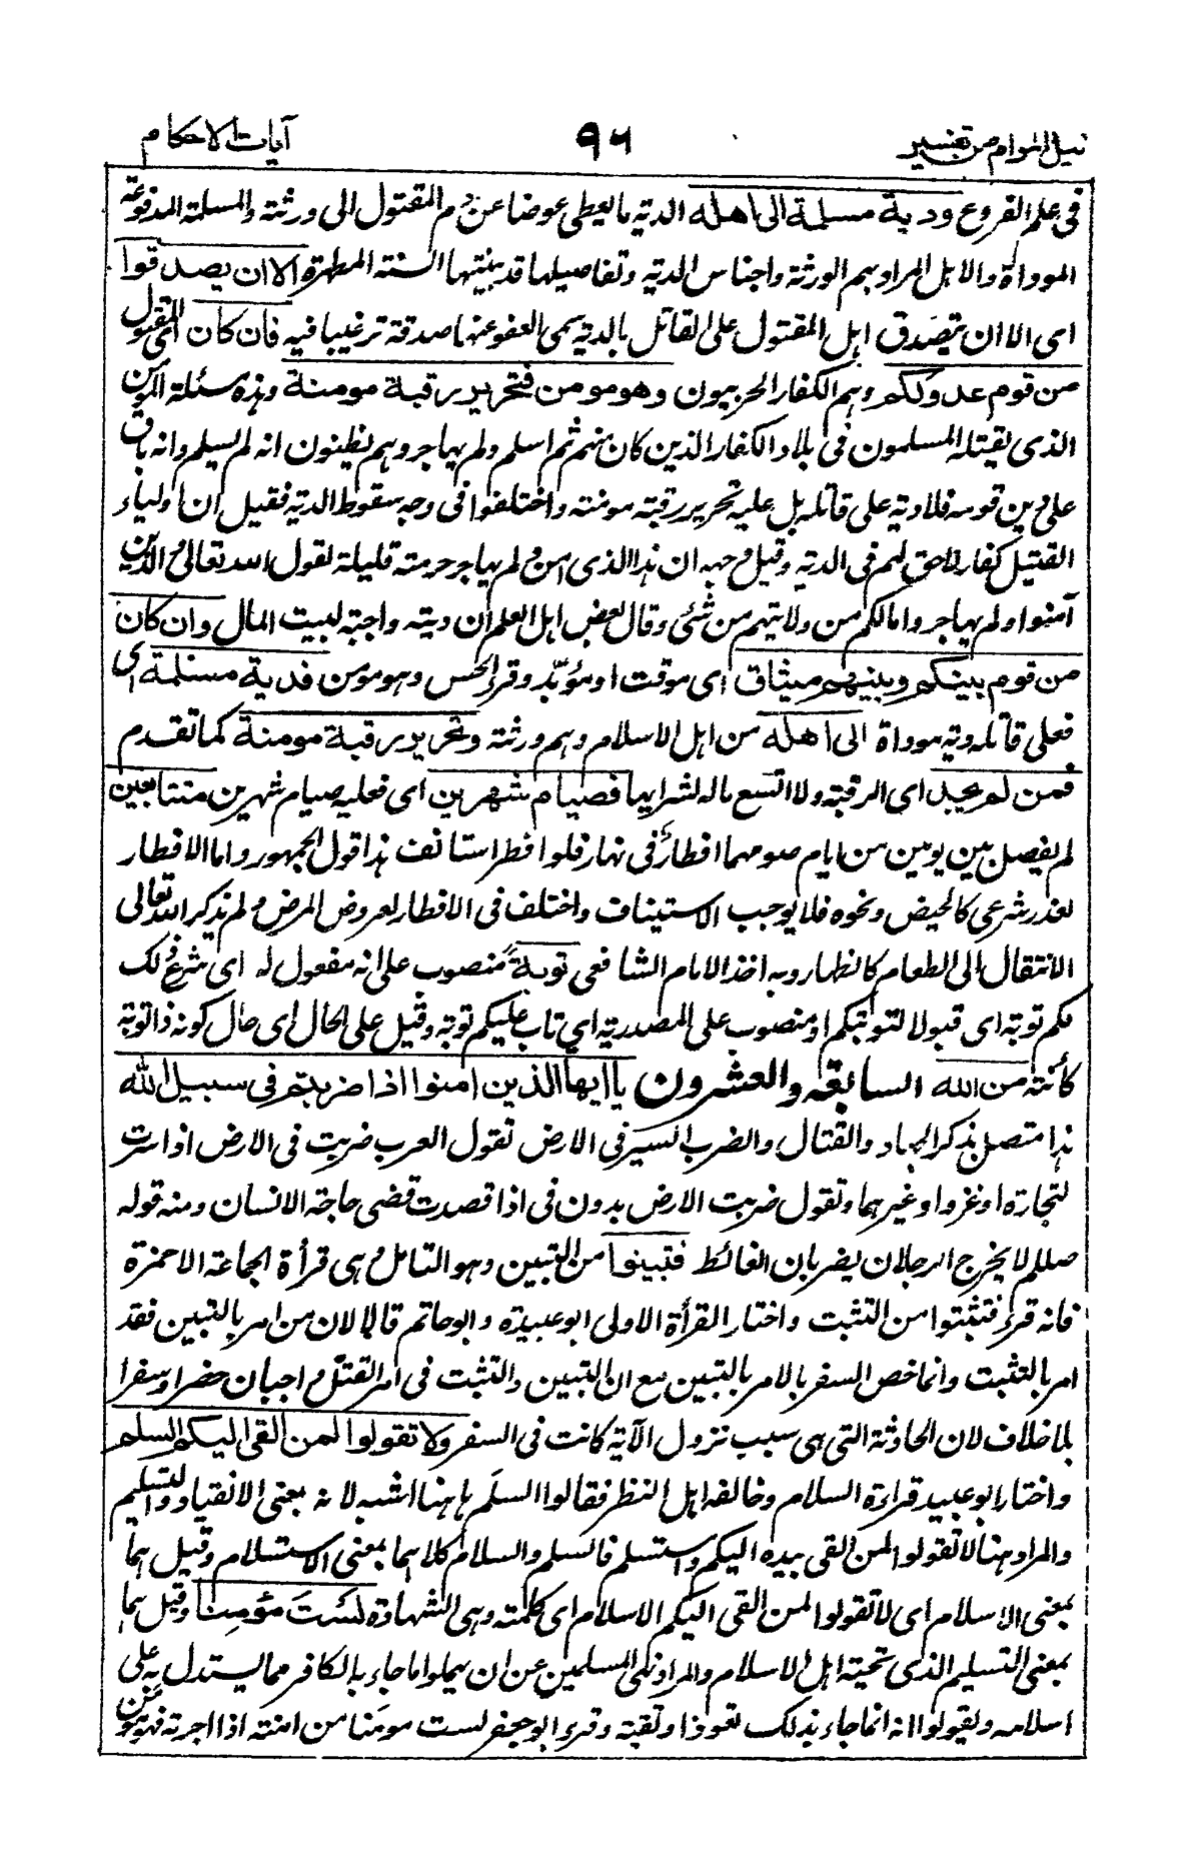 نيل المرام من تفسير ٩٦ آيات الاحكام
فى علم الفروع ودية مسلمة الى اهله الدية ما يعطى عوضا عن دم المقتول الى ورثته والمسلمة المدفوعة
الموداة والاهل المراد بهم الورثة واجناس الدية وتفاصيلها قد بينتها السنة المطهرة الا ان يصدقوا
اى الا ان يتصدق اهل المقتول على القاتل بالدية سمى العفو عنها صدقة ترغيبا فيه فان كان اى المقتول
من قوم عدو لكم وهم الكفار الحربيون وهو مومن فتحرير رقبة مومنة وهذه مسئلة المومن
الذى يقتله المسلمون فى بلاد الكفار الذين كان منهم ثم اسلم ولم يهاجر وهم يظنون انه لم يسلم وانه باق
على دين قومه فلا دية على قاتله بل عليه تحرير رقبة مومنة واختلفوا فى وجه سقوط الدية فقيل ان اولياء
القتيل كفار لا حق لهم فى الدية وقيل وجهه ان هذا الذى امن ولم يهاجر حرمته قليلة لقول الله تعالى والذين
آمنوا ولم يهاجروا مالكم من ولايتهم من شئ وقال بعض اهل العلم ان ديته واجبة لبيت المال وان كان
من قوم بينكم وبينهم ميثاق اى موقت او مؤبّد وقرء الحسن وهو مومن فدية مسلمة اى
فعلى قاتله دية موداة الى اهله من اهل الاسلام وهم ورثته وتحرير رقبة مومنة كما تقدم
فمن لم يجد اى الرقبة ولا اتسع ماله لشرايها فصيام شهرين اى فعليه صيام شهرين متتابعين
لم يفصل بين يومين من ايام صومهما افطار فى نهار فلو افطر استانف هذا قول الجمهور واما الافطار
لعذر شرعى كالحيض ونحوه فلا يوجب الاستيناف واختلف فى الافطار لعروض المرض ولم يذكر الله تعالى
الانتقال الى الطعام كالظهار وبه اخذ الامام الشافعى توبةً منصوب على انه مفعول له اى شرع ذلك
لكم توبة اى قبولا لتوبتكم او منصوب على المصدرية اي تاب عليكم توبة وقيل على الحال اى حال كونه ذا توبة
كائنة من الله السابعة والعشرون يا ايها الذين امنوا اذا ضربتم فى سبيل الله
هذا متصل بذكر الجهاد والقتال والضرب السير فى الارض تقول العرب ضربت فى الارض اذا سرت
لتجارة او غزو او غيرهما وتقول ضربت الارض بدون فى اذا قصدت قضى حاجة الانسان ومنه قوله
صللم لا يخرج الرجلان يضربان الغائط فتبينوا من التبين وهو التامل وهى قرأة الجماعة الا حمزة
فانه قرء فتثبتوا من التثبت واختار القرأة الاولى ابو عبيدة وابو حاتم قالا لان من امر بالتبين فقد
امر بالتثبت وانما خص السفر بالامر بالتبين مع ان التبين والتثبت فى امر القتل واجبان حضرا وسفرا
بلا خلاف لان الحادثة التى هى سبب نزول الآية كانت فى السفر ولا تقولوا لمن القى اليكم السلم
واختار ابو عبيد قراءة السلام وخالفه اهل النظر فقالوا السلَم هاهنا اشبه لانه بمعنى الانقياد والتسليم
والمراد هنا لا تقولوا لمن القى بيده اليكم واستسلم فالسلم والسلام كلاهما بمعنى الاستسلام وقيل هما
بمعنى الاسلام اى لا تقولوا لمن القى اليكم الاسلام اى كلمته وهى الشهادة لست مؤمنا وقيل هما
بمعنى التسليم الذى تحية اهل الاسلام والمراد نهى المسلمين عن ان يهملوا ما جاء به الكافر مما يستدل به على
اسلامه ويقولوا انه انما جاء بذلك تعوذا وتقية وقرء ابو جعفر لست مومَنا من امنته اذا اجرته فهو مومَن